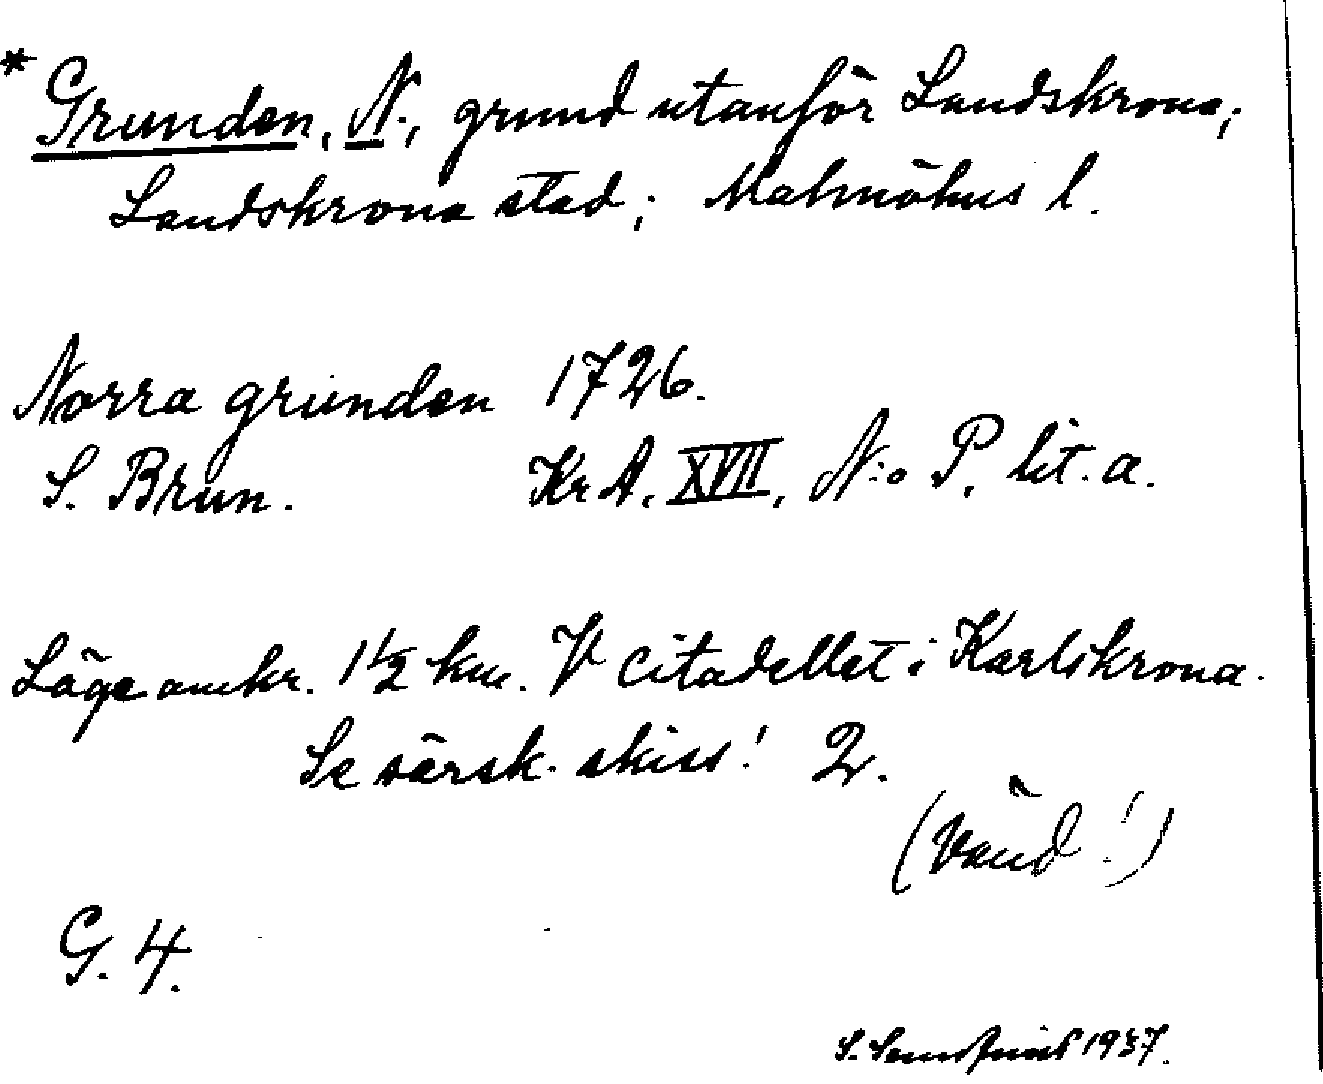 * Grunden, N., grund utanför Landskrona;
Landskrona stad; Malmöhus l.
Norra grunden 1726.
S. Brun. KrA. XVII, N:o P. lit. a.
Läge omkr. 1 1/2 km. V citadellet i Karlskrona.
Se särsk. skiss! 2.
(Vänd!)
G. 4.
S. 1937.